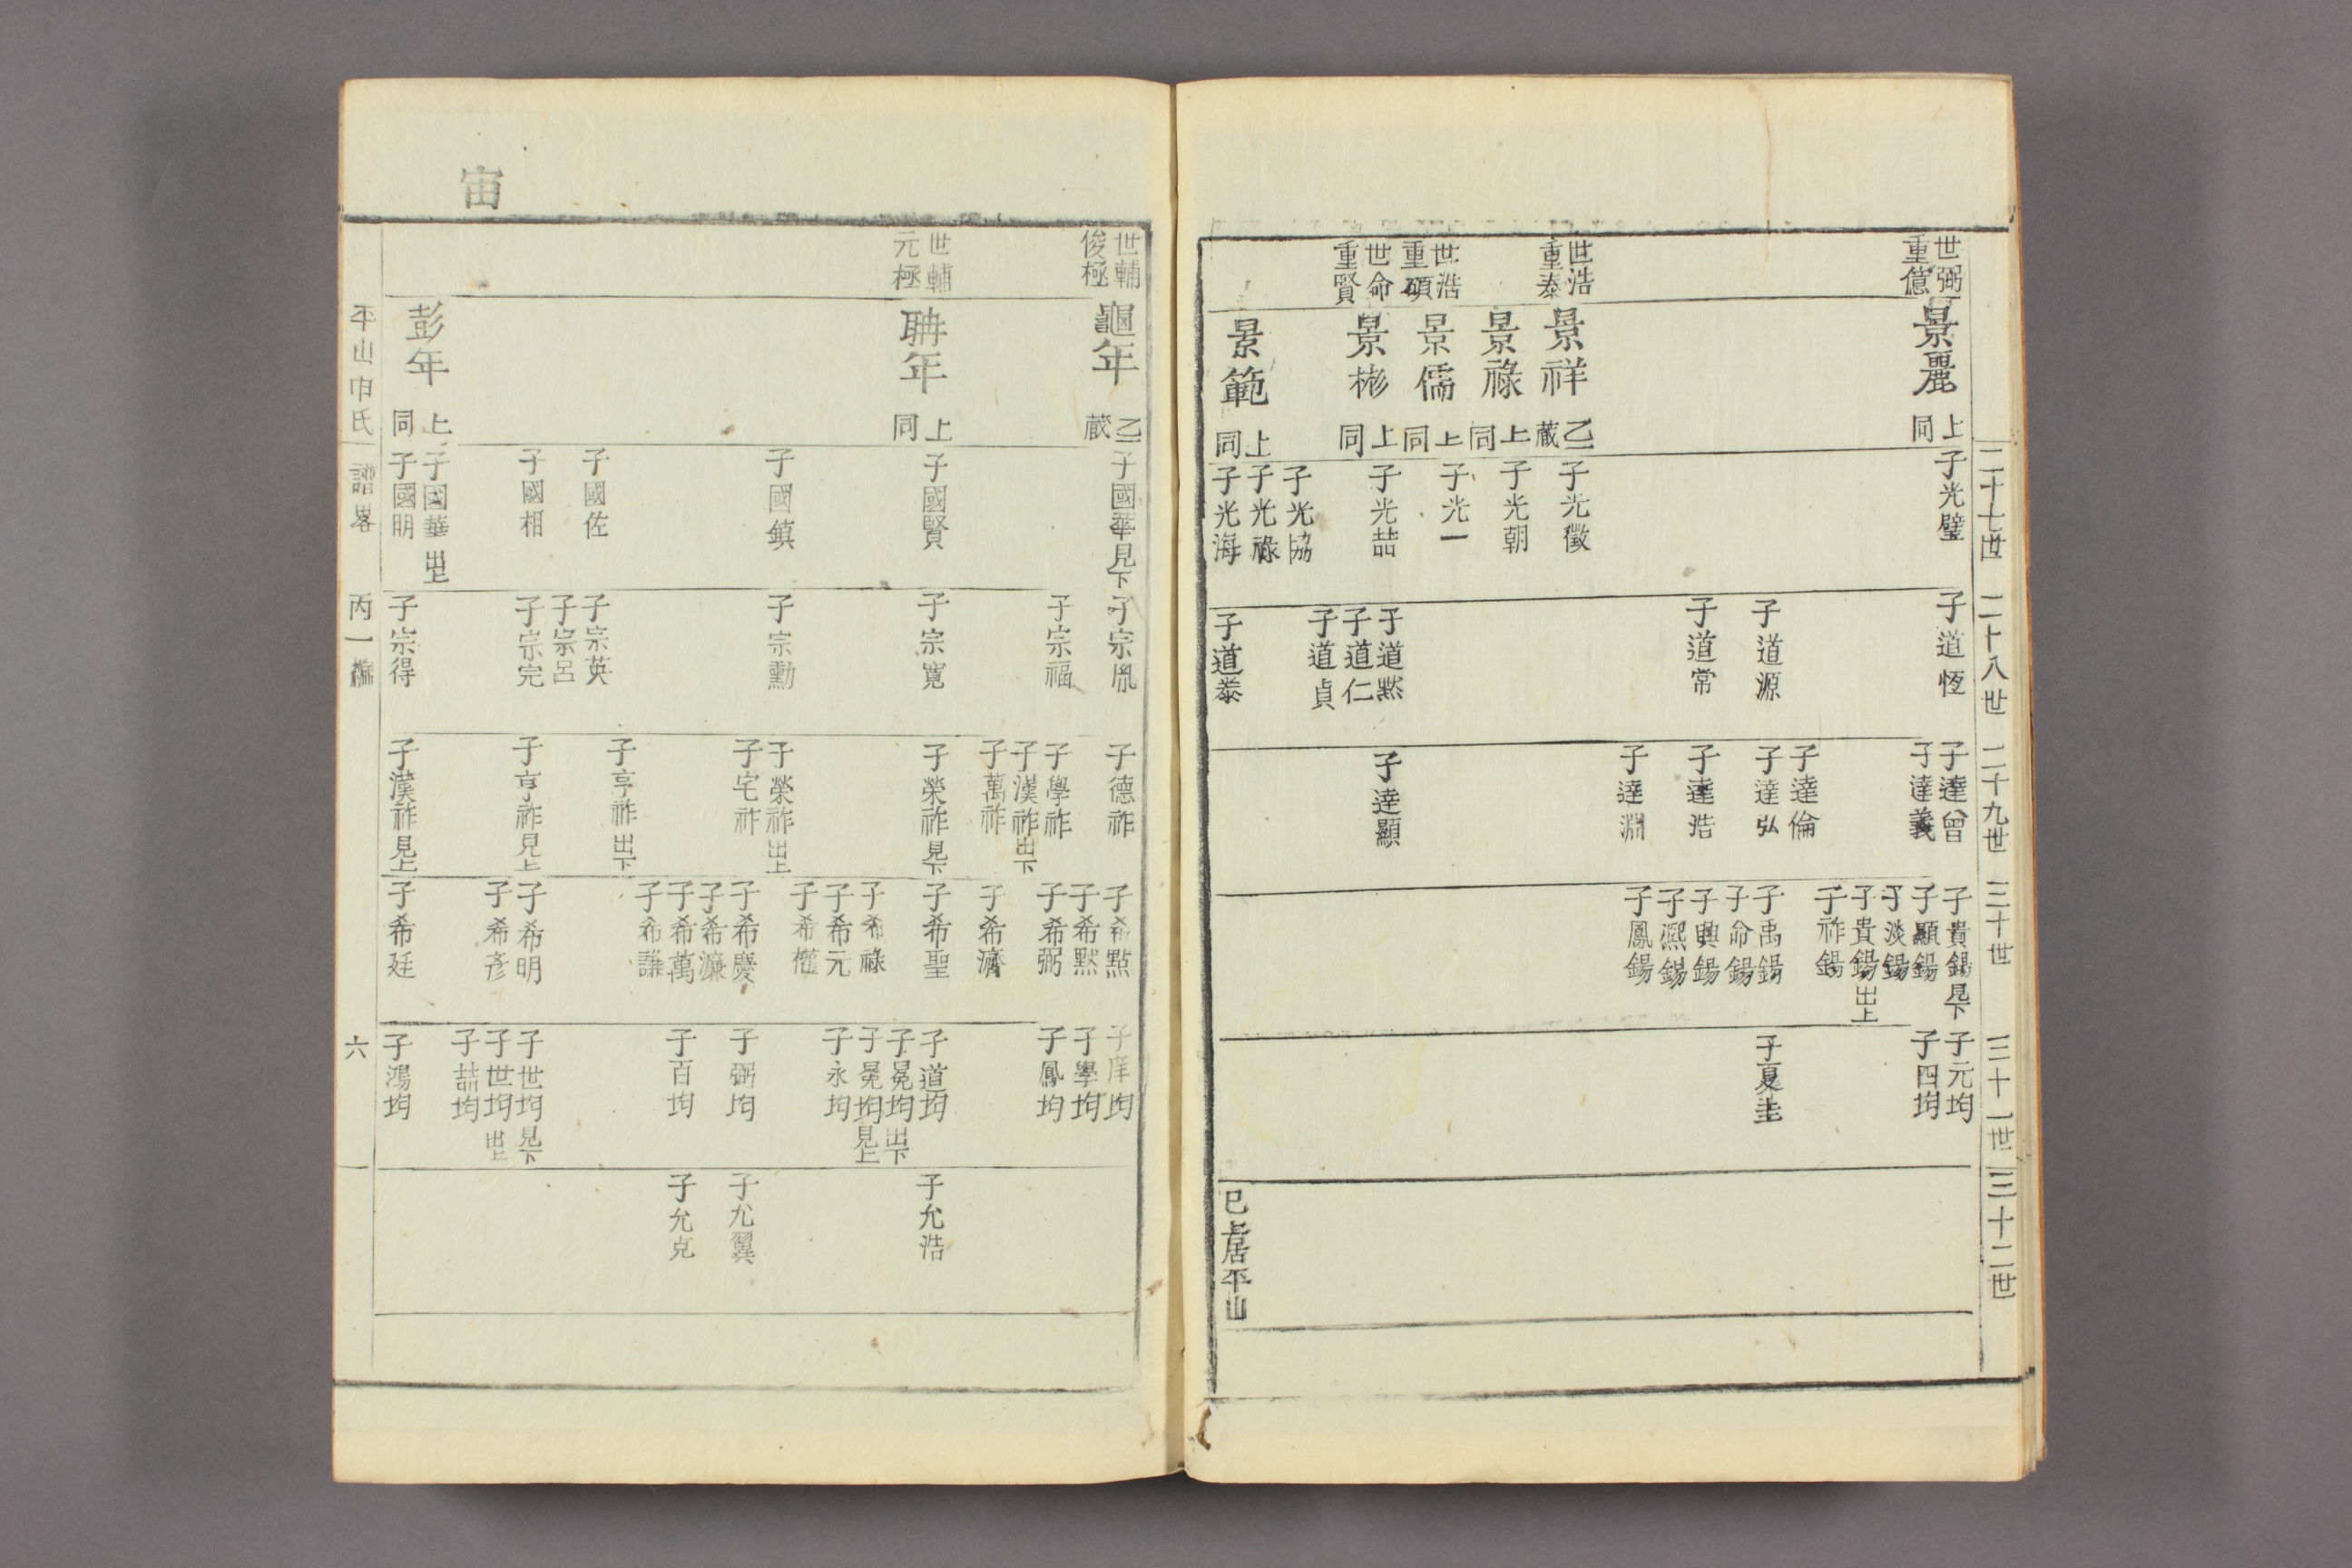 二十七世
二十八世
二十九世
三十世
三十一世
三十二世
世弼
重僖
景麗
上
同
子光璧
子道恆
子達曾
子達義
子貴錫見下
子顯錫
子淡錫
子貴錫出上
子祚錫
子元均
子四均
子道源
子達倫
子達弘
子禹錫
子命錫
子興錫
子熙錫
子鳳錫
子夏圭
子道常
子達浩
子達淵
世浩
重泰
景祥
乙
蔵
子光徵
景祿
上
同
子光朝
世浩
重碩
景儒
上
同
子光一
世命
重賢
景彬
上
同
子光喆
子道默
子道仁
子道貞
子達顯
景範
上
同
子光協
子光祿
子光海
子道泰
已上居平山
宙
世輔
俊極
龜年
乙
蔵
子國華見下
子宗胤
子宗福
子德祚
子學祚
子漢祚出下
子萬祚
子希點
子希默
子希弼
子希濟
子庠均
子學均
子鳳均
世輔
元極
聃年
上
同
子國賢
子宗寬
子榮祚見下
子希聖
子希祿
子希元
子希權
子道均
子冕均出下
子冕均見上
子永均
子允浩
子國鎮
子宗勳
子榮祚出上
子宅祚
子希慶
子希濂
子希萬
子希謙
子弼均
子百均
子允翼
子允克
子國佐
子宗英
子宗呂
子亨祚出下
子國相
子宗完
子亨祚見上
子希明
子希彥
子世均見下
子世均出上
子喆均
彭年
上
同
子國華出上
子國明
子宗得
子漢祚見上
子希廷
子鴻均
平山申氏 譜畧 丙一編 六